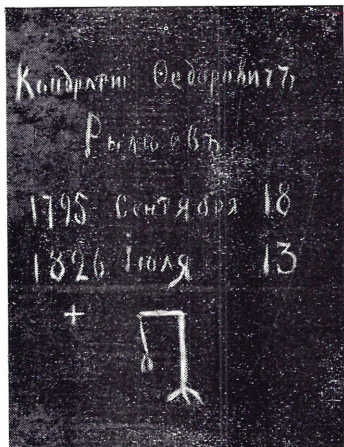 Кондратiй Ѳедоровичъ
Рылѣевъ
1795 Сентября 18
1826 Iюля 13